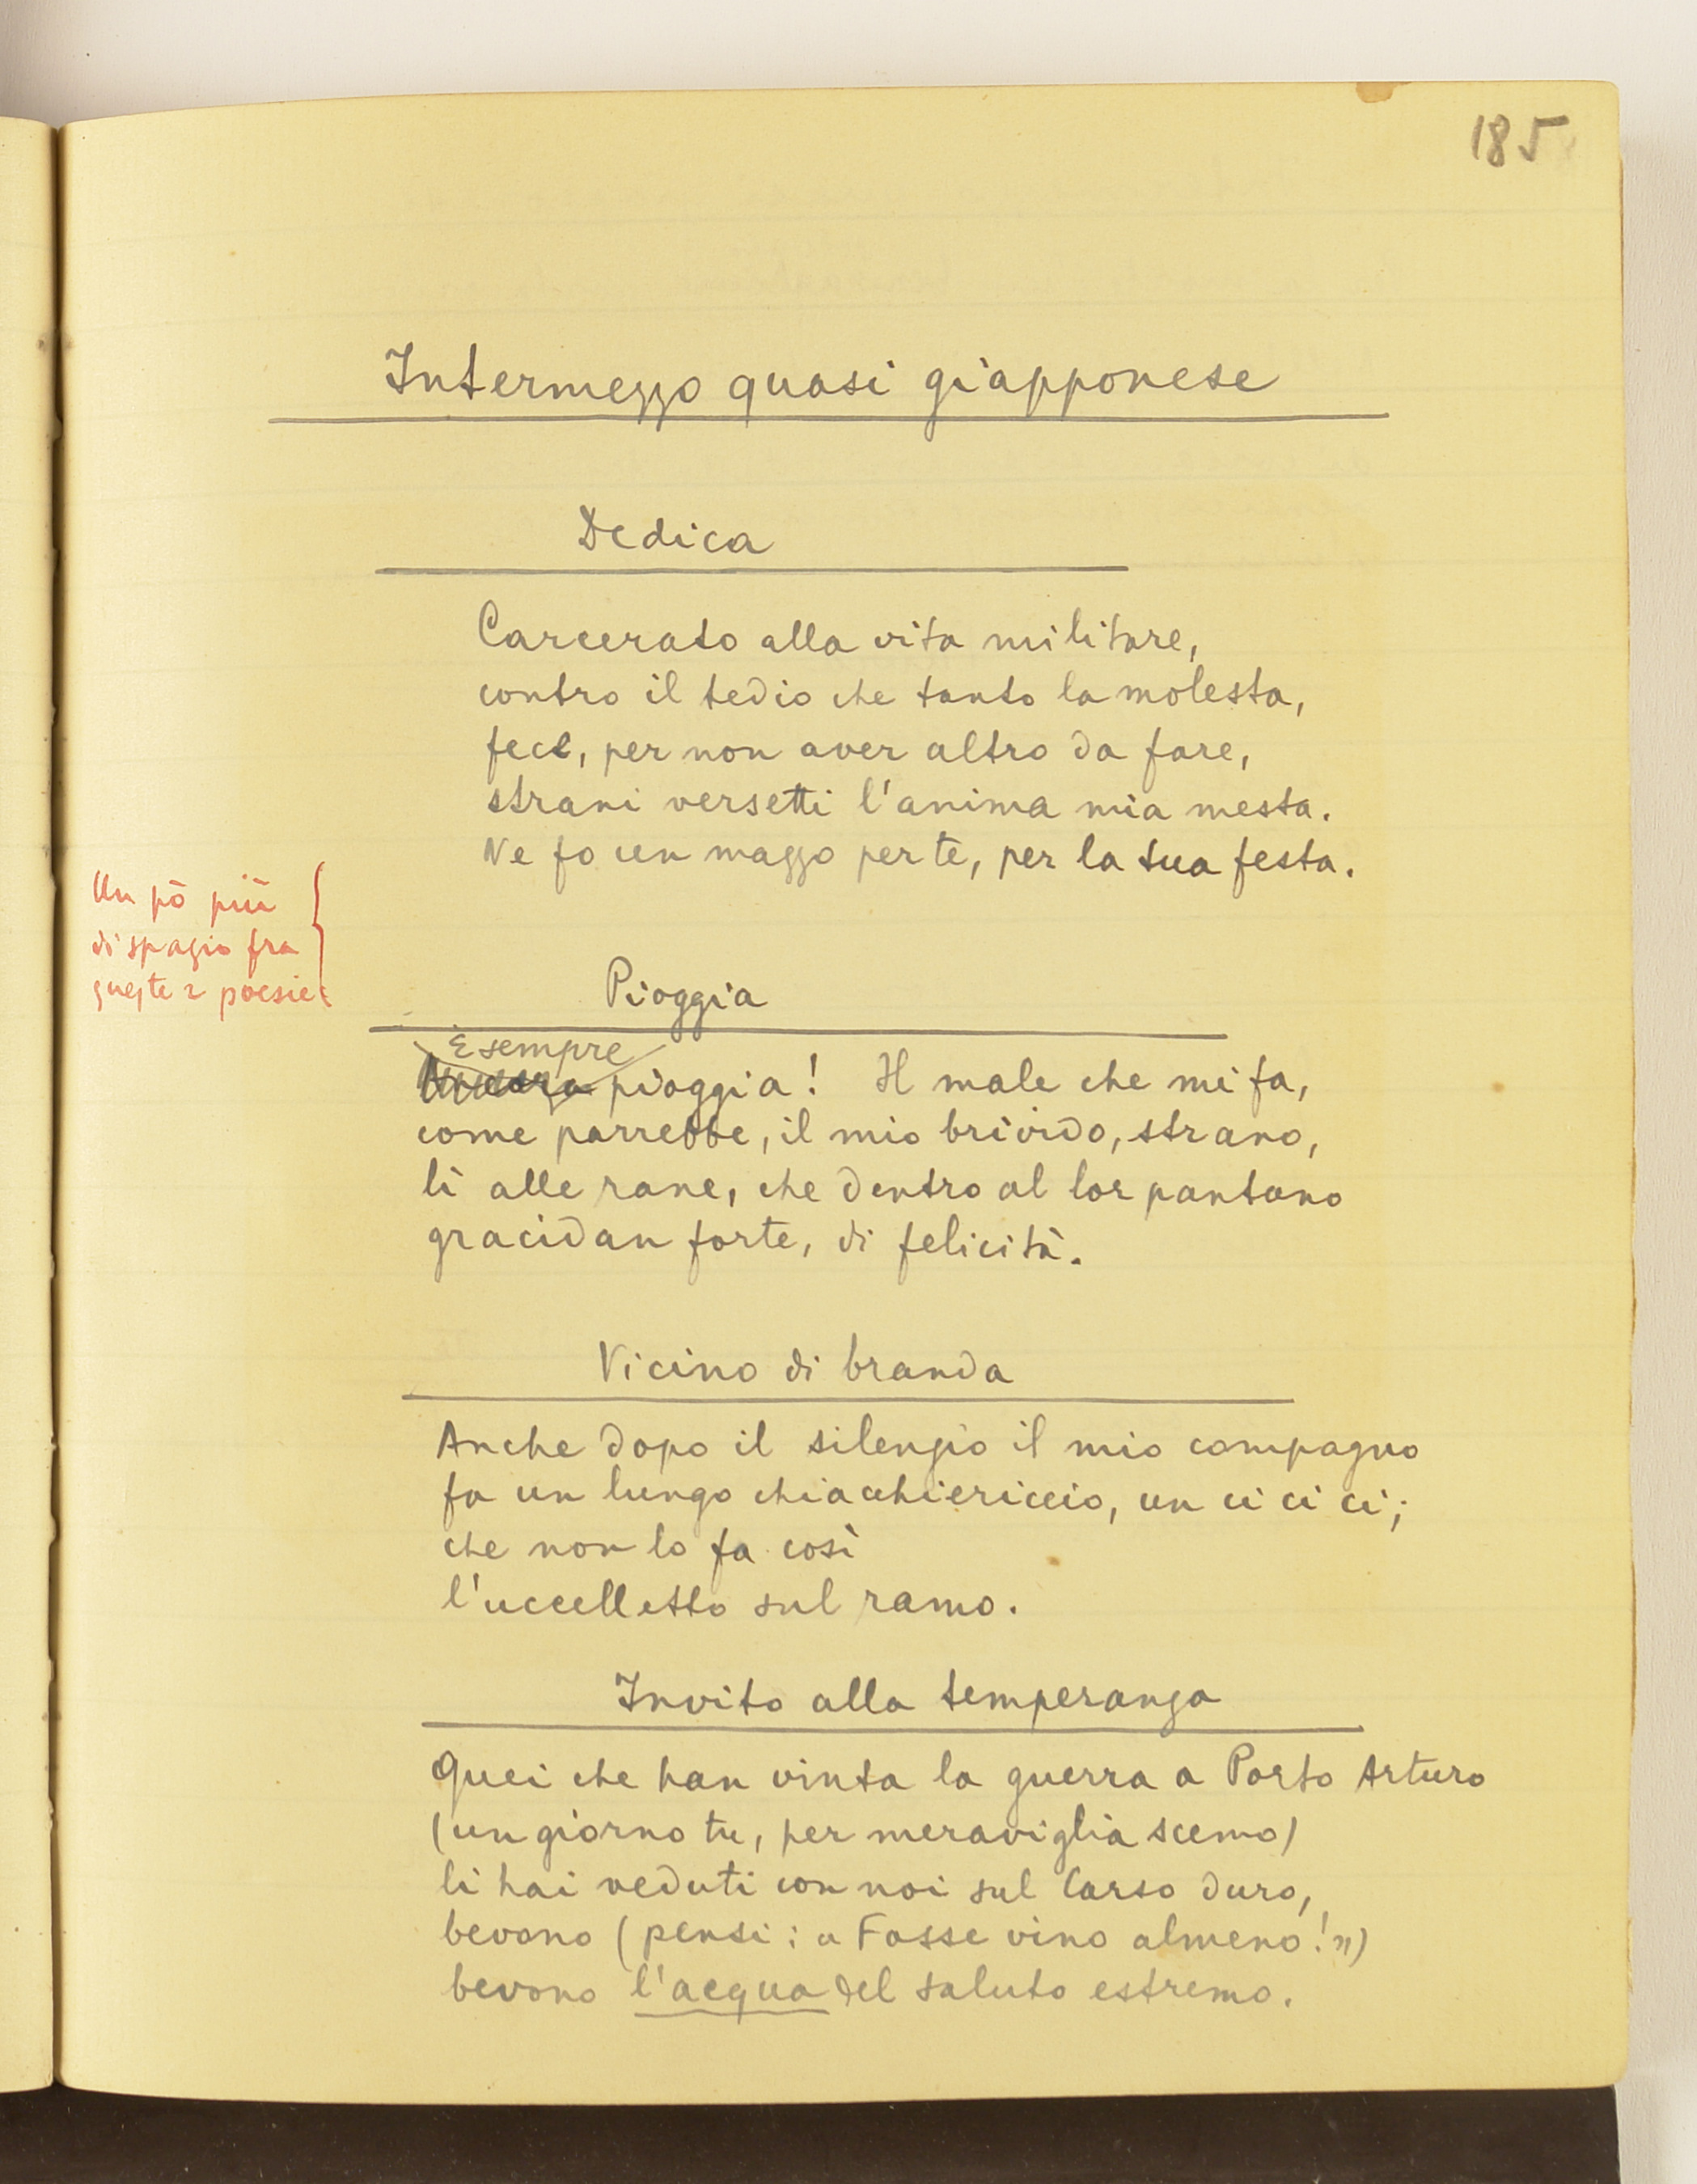 185
Intermezzo quasi giapponese
Dedica
Carcerato alla vita militare,
contro il tedio che tanto la molesta,
fece, per non aver altro da fare,
strani versetti l'anima mia mesta.
Ne fo un mazzo per te, per la tua festa.
Un pò più
di spazio fra
queste 2 poesie
Pioggia
È sempre
Ancora pioggia! Il male che mi fa,
come parrebbe, il mio brivido, strano,
lì alle rane, che dentro al lor pantano
gracidan forte, di felicità.
Vicino di branda
Anche dopo il silenzio il mio compagno
fa un lungo chiacchiericcio, un ci ci ci;
che non lo fa così
l'uccelletto sul ramo.
Invito alla temperanza
Quei che han vinta la guerra a Porto Arturo
(un giorno tu, per meraviglia scemo)
li hai veduti con noi sul Carso duro,
bevono (pensi: « Fosse vino almeno!»)
bevono l'acqua del saluto estremo.